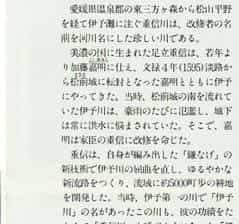 愛媛県温泉郡の東三方ヶ森から松山平野
を経て伊予灘に注ぐ重信川は、改修者の名
前を河川名にした珍しい川である。
美濃の国に生まれた足立重信は、若年よ
り加藤嘉明に仕え、文禄4年(1595)淡路か
ら松前城に転封となった嘉明とともに伊予
にやってきた。当時、松前城の南を流れて
いた伊予川は、豪雨のたびに氾濫し、城下
は常に洪水に悩まされていた。そこで、嘉
明は家臣の重信に改修を命じた。
重信は、自身が編み出した「鎌なげ」の
新技術で伊予川の屈曲を直し、ゆるやかな
新流路をつくり、流域に約5000町歩の耕地
を開発した。当時、伊予第一の川で「伊予
川」の名があったこの川も、彼の功績をた